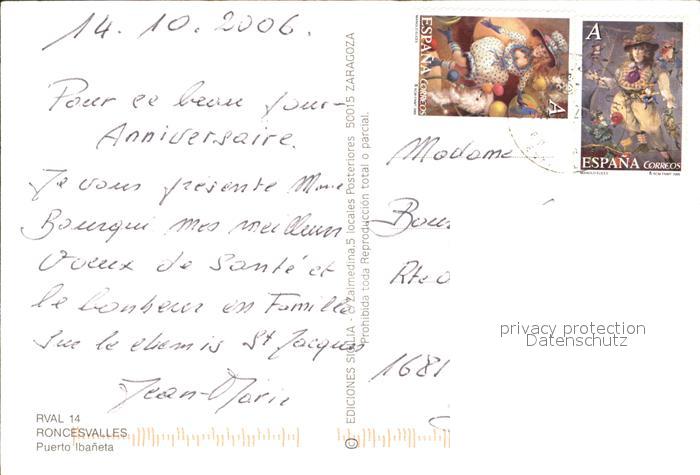 14. 10. 2006.
Pour ce beau jour-
Anniversaire.
Je vous présente Mme
Bourqui mes meilleurs
voeux de Santé et
le bonheur en Famille
sur le chemis St Jacques
Jean-Marie
RVAL 14
RONCESVALLES
Puerto Ibañeta
© EDICIONES SICILIA - Zalmedina,5 locales Posteriores 50015 ZARAGOZA
Prohibida toda Reproducción total o parcial.
ESPAÑA CORREOS
A
A
ESPAÑA CORREOS
Madame
Bour
Rte
1681
privacy protection
Datenschutz